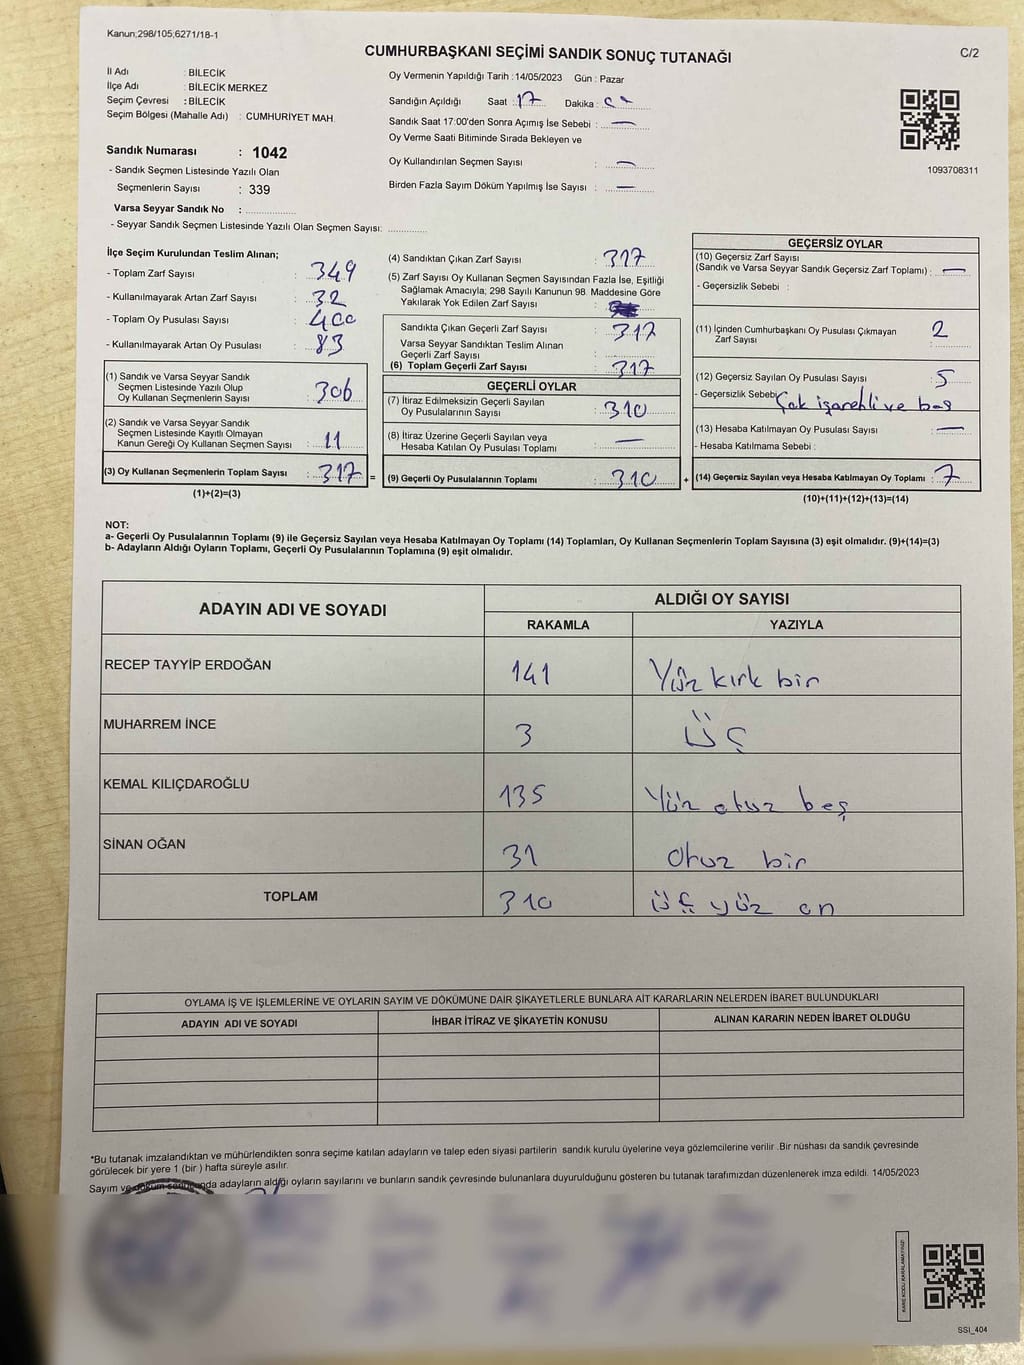 Kanun;298/105;6271/18-1
CUMHURBAŞKANI SEÇİMİ SANDIK SONUÇ TUTANAĞI
C/2
İl Adı : BİLECİK
İlçe Adı : BİLECİK MERKEZ
Seçim Çevresi : BİLECİK
Seçim Bölgesi (Mahalle Adı) : CUMHURİYET MAH.
Sandık Numarası : 1042
- Sandık Seçmen Listesinde Yazılı Olan
Seçmenlerin Sayısı : 339
Varsa Seyyar Sandık No : ................
- Seyyar Sandık Seçmen Listesinde Yazılı Olan Seçmen Sayısı: ............
Oy Vermenin Yapıldığı Tarih : 14/05/2023 Gün : Pazar
Sandığın Açıldığı Saat : 17 Dakika :
Sandık Saat 17:00'den Sonra Açımış İse Sebebi : —
Oy Verme Saati Bitiminde Sırada Bekleyen ve
Oy Kullandırılan Seçmen Sayısı : —
Birden Fazla Sayım Döküm Yapılmış İse Sayısı : —
1093708311
İlçe Seçim Kurulundan Teslim Alınan;
- Toplam Zarf Sayısı : 349
- Kullanılmayarak Artan Zarf Sayısı : 32
- Toplam Oy Pusulası Sayısı : 400
- Kullanılmayarak Artan Oy Pusulası : 83
(1) Sandık ve Varsa Seyyar Sandık
Seçmen Listesinde Yazılı Olup
Oy Kullanan Seçmenlerin Sayısı : 306
(2) Sandık ve Varsa Seyyar Sandık
Seçmen Listesinde Kayıtlı Olmayan
Kanun Gereği Oy Kullanan Seçmen Sayısı : 11
(3) Oy Kullanan Seçmenlerin Toplam Sayısı : 317 =
(1)+(2)=(3)
(4) Sandıktan Çıkan Zarf Sayısı : 317
(5) Zarf Sayısı Oy Kullanan Seçmen Sayısından Fazla İse, Eşitliği
Sağlamak Amacıyla; 298 Sayılı Kanunun 98. Maddesine Göre
Yakılarak Yok Edilen Zarf Sayısı :
Sandıkta Çıkan Geçerli Zarf Sayısı : 317
Varsa Seyyar Sandıktan Teslim Alınan
Geçerli Zarf Sayısı :
(6) Toplam Geçerli Zarf Sayısı : 317
GEÇERLİ OYLAR
(7) İtiraz Edilmeksizin Geçerli Sayılan
Oy Pusulalarının Sayısı : 310
(8) İtiraz Üzerine Geçerli Sayılan veya
Hesaba Katılan Oy Pusulası Toplamı : —
(9) Geçerli Oy Pusulalarının Toplamı : 310 +
GEÇERSİZ OYLAR
(10) Geçersiz Zarf Sayısı
(Sandık ve Varsa Seyyar Sandık Geçersiz Zarf Toplamı) : —
- Geçersizlik Sebebi :
(11) İçinden Cumhurbaşkanı Oy Pusulası Çıkmayan
Zarf Sayısı : 2
(12) Geçersiz Sayılan Oy Pusulası Sayısı : 5
- Geçersizlik Sebebi Çok işaretli ve boş
(13) Hesaba Katılmayan Oy Pusulası Sayısı : —
- Hesaba Katılmama Sebebi :
(14) Geçersiz Sayılan veya Hesaba Katılmayan Oy Toplamı : 7
(10)+(11)+(12)+(13)=(14)
NOT:
a- Geçerli Oy Pusulalarının Toplamı (9) ile Geçersiz Sayılan veya Hesaba Katılmayan Oy Toplamı (14) Toplamları, Oy Kullanan Seçmenlerin Toplam Sayısına (3) eşit olmalıdır. (9)+(14)=(3)
b- Adayların Aldığı Oyların Toplamı, Geçerli Oy Pusulalarının Toplamına (9) eşit olmalıdır.
ADAYIN ADI VE SOYADI
ALDIĞI OY SAYISI
RAKAMLA YAZIYLA
RECEP TAYYİP ERDOĞAN 141 Yüz kırk bir
MUHARREM İNCE 3 üç
KEMAL KILIÇDAROĞLU 135 Yüz otuz beş
SİNAN OĞAN 31 Otuz bir
TOPLAM 310 üç yüz on
OYLAMA İŞ VE İŞLEMLERİNE VE OYLARIN SAYIM VE DÖKÜMÜNE DAİR ŞİKAYETLERLE BUNLARA AİT KARARLARIN NELERDEN İBARET BULUNDUKLARI
ADAYIN ADI VE SOYADI İHBAR İTİRAZ VE ŞİKAYETİN KONUSU ALINAN KARARIN NEDEN İBARET OLDUĞU
*Bu tutanak imzalandıktan ve mühürlendikten sonra seçime katılan adayların ve talep eden siyasi partilerin sandık kurulu üyelerine veya gözlemcilerine verilir .Bir nüshası da sandık çevresinde
görülecek bir yere 1 (bir ) hafta süreyle asılır.
Sayım ve döküm adayların aldığı oyların sayılarını ve bunların sandık çevresinde bulunanlara duyurulduğunu gösteren bu tutanak tarafımızdan düzenlenerek imza edildi. 14/05/2023
KARE KODU KARALAMAYINIZ!
SSI_404